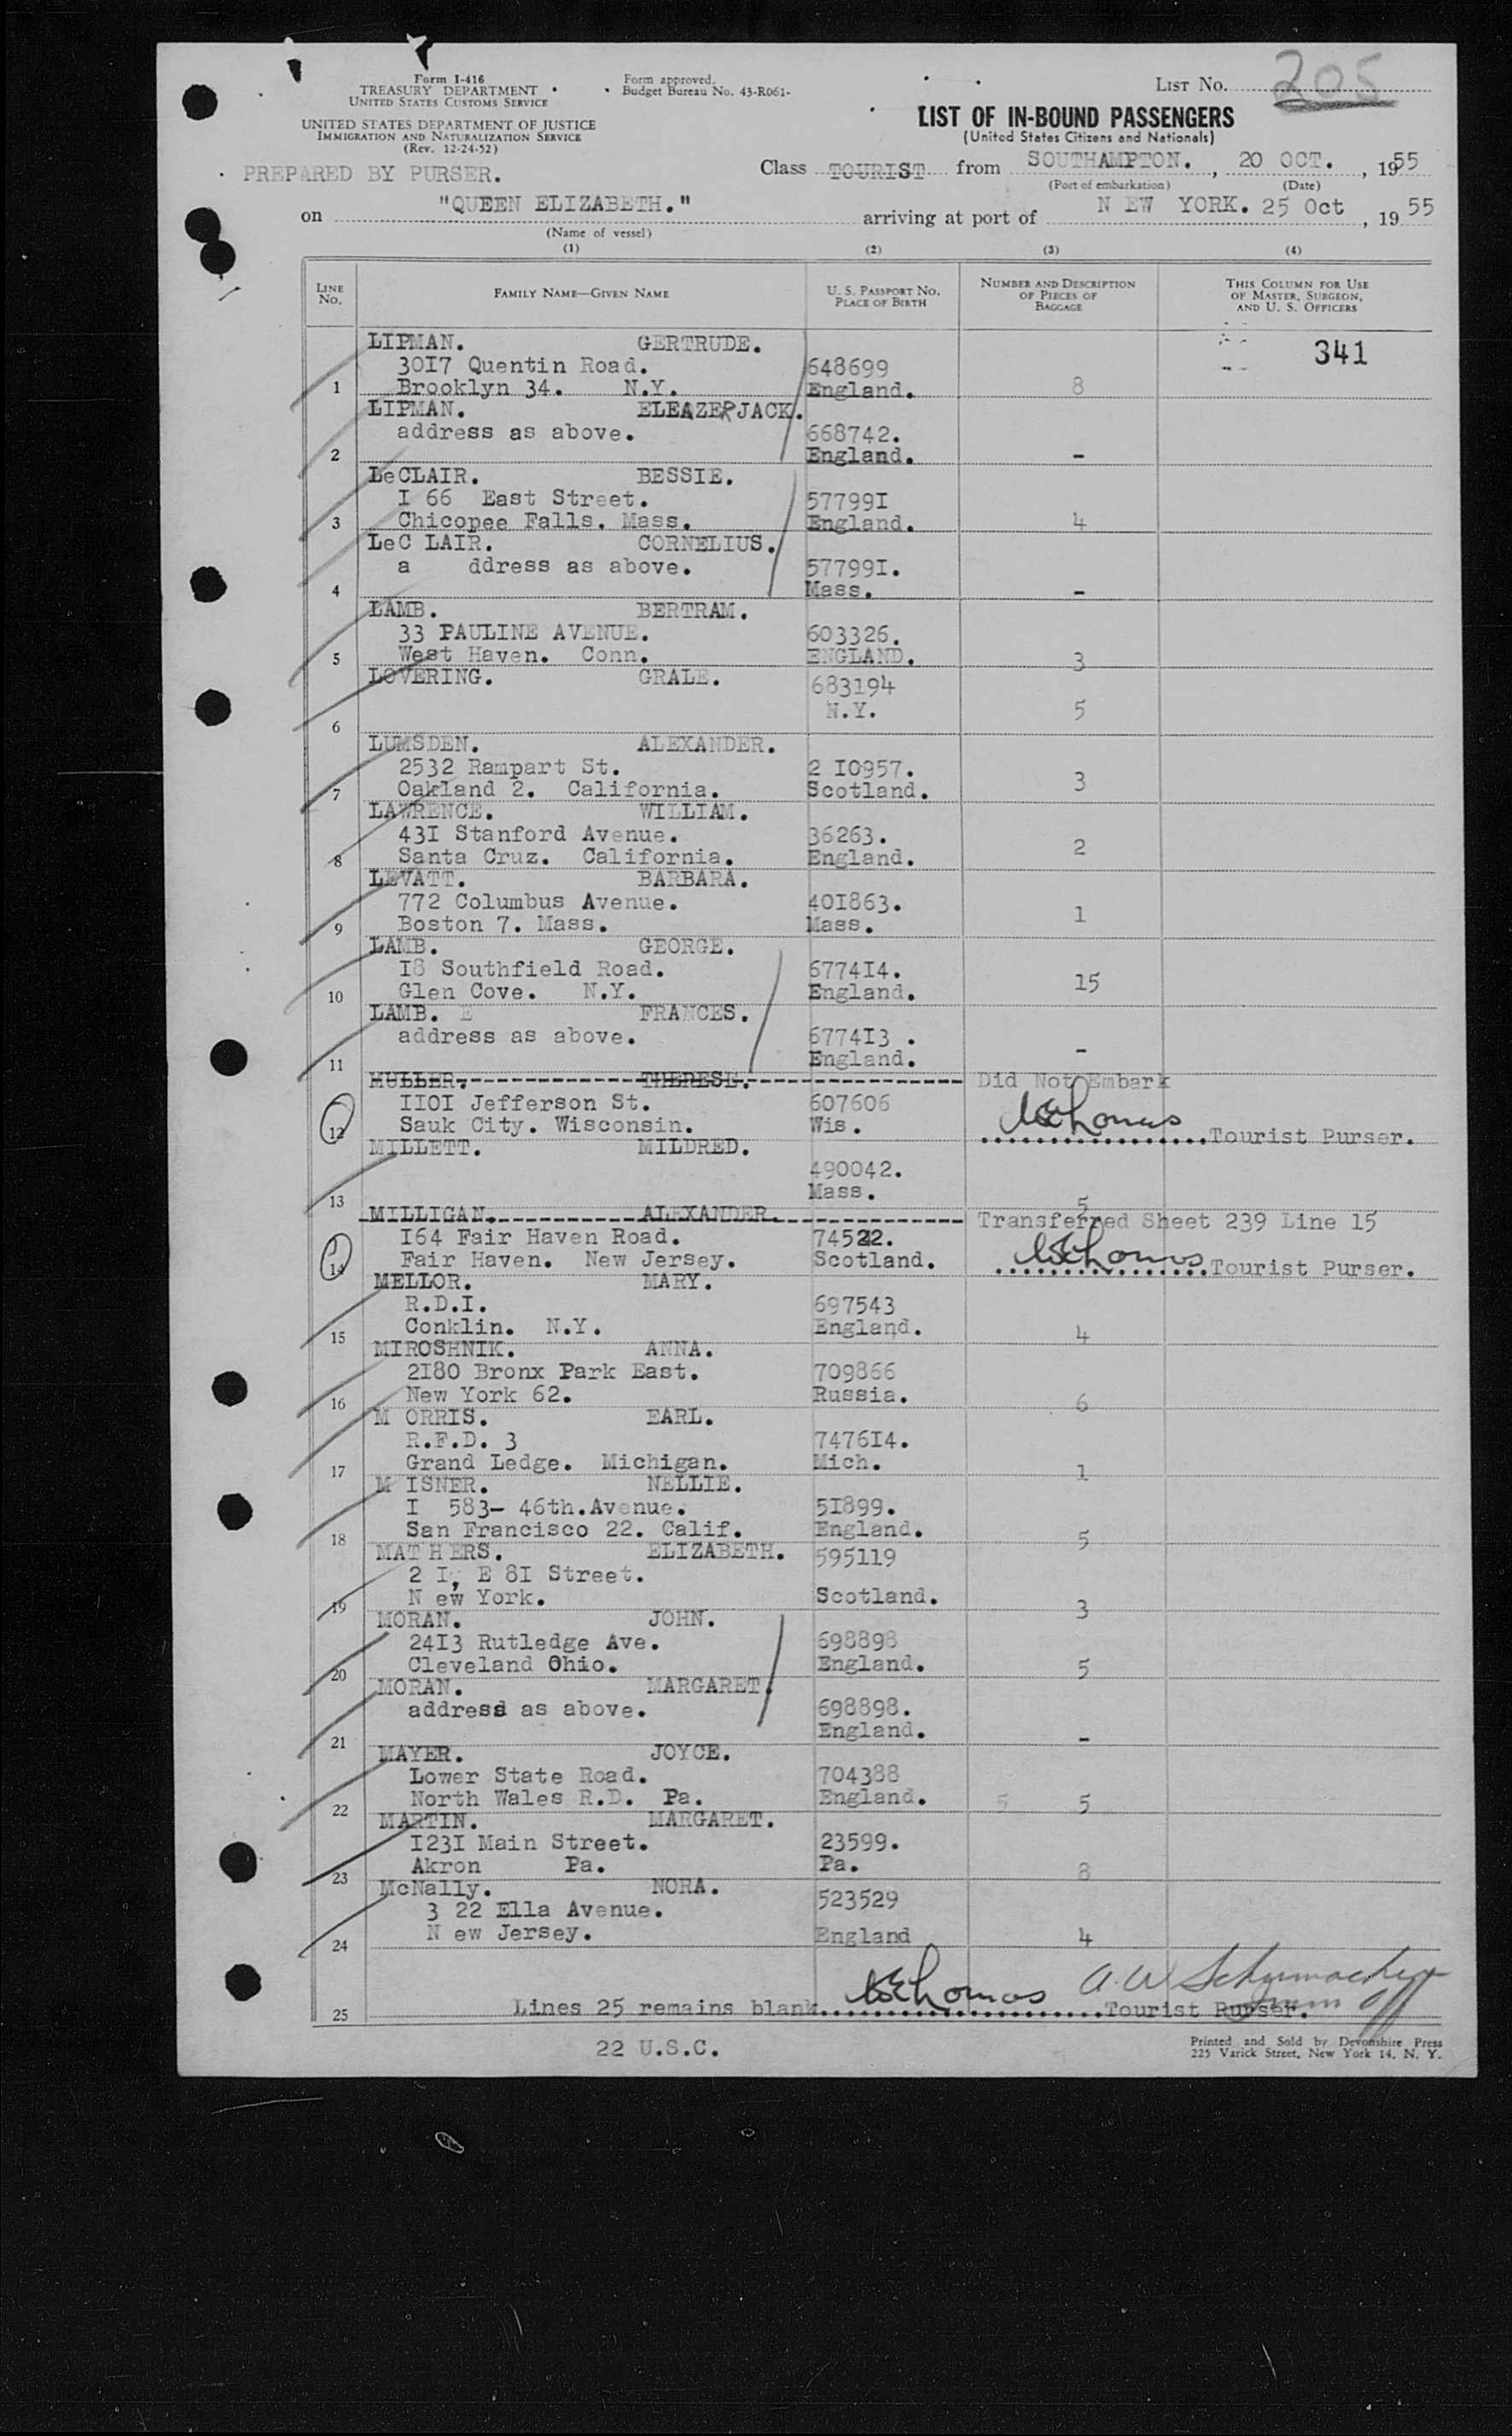 Form I-416
TREASURY DEPARTMENT
UNITED STATES CUSTOMS SERVICE
UNITED STATES DEPARTMENT OF JUSTICE
IMMIGRATION AND NATURALIZATION SERVICE
(Rev. 12-24-52)
Form approved.
Budget Bureau No. 43-R061-
LIST No. 205
LIST OF IN-BOUND PASSENGERS
(United States Citizens and Nationals)
PREPARED BY PURSER.
Class TOURIST from SOUTHAMPTON. , 20 OCT. , 1955
(Port of embarkation) (Date)
on "QUEEN ELIZABETH." arriving at port of N EW YORK. 25 Oct , 19 55
(Name of vessel)
(1) (2) (3) (4)
LINE No. FAMILY NAME—GIVEN NAME U. S. PASSPORT No. PLACE OF BIRTH NUMBER AND DESCRIPTION OF PIECES OF BAGGAGE THIS COLUMN FOR USE OF MASTER, SURGEON, AND U. S. OFFICERS
341
LIPMAN. GERTRUDE.
3OI7 Quentin Road. 648699
1 Brooklyn 34. N.Y. England. 8
LIPMAN. ELEAZER JACK.
address as above. 668742.
2 England. -
LeCLAIR. BESSIE.
I 66 East Street. 57799I
3 Chicopee Falls. Mass. England. 4
LeC LAIR. CORNELIUS.
a ddress as above. 57799I.
4 Mass. -
LAMB. BERTRAM.
33 PAULINE AVENUE. 603326.
5 West Haven. Conn. ENGLAND. 3
LOVERING. GRALE. 683194
6 N.Y. 5
LUMSDEN. ALEXANDER.
2532 Rampart St. 2 IO957. 3
7 Oakland 2. California. Scotland.
LAWRENCE. WILLIAM.
43I Stanford Avenue. 36263. 2
8 Santa Cruz. California. England.
LEVATT. BARBARA.
772 Columbus Avenue. 40I863. 1
9 Boston 7. Mass. Mass.
LAMB. GEORGE.
I8 Southfield Road. 6774I4. 15
10 Glen Cove. N.Y. England.
LAMB. E FRANCES.
address as above. 6774I3 . -
11 England.
MULLER. THERESE. Did Not Embark
IIOI Jefferson St. 607606
12 Sauk City. Wisconsin. Wis. Tourist Purser.
MILLETT. MILDRED.
490042.
13 Mass. 5
MILLIGAN. ALEXANDER. Transferred Sheet 239 Line 15
I64 Fair Haven Road. 74522.
14 Fair Haven. New Jersey. Scotland. Tourist Purser.
MELLOR. MARY.
R.D.I. 697543
15 Conklin. N.Y. England. 4
MIROSHNIK. ANNA.
2I80 Bronx Park East. 709866
16 New York 62. Russia. 6
M ORRIS. EARL.
R.F.D. 3 7476I4.
17 Grand Ledge. Michigan. Mich. 1
M ISNER. NELLIE.
I 583- 46th.Avenue. 5I899.
18 San Francisco 22. Calif. England. 5
MAT H ERS. ELIZABETH. 595119
2 I, E 8I Street.
19 N ew York. Scotland. 3
MORAN. JOHN.
24I3 Rutledge Ave. 698898
20 Cleveland Ohio. England. 5
MORAN. MARGARET.
address as above. 698898.
21 England. -
MAYER. JOYCE.
Lower State Road. 704388
22 North Wales R.D. Pa. England. 5 5
MARTIN. MARGARET.
I23I Main Street. 23599.
23 Akron Pa. Pa. 8
McNally. NORA. 523529
3 22 Ella Avenue.
24 N ew Jersey. England 4
25 Lines 25 remains blank. Tourist Purser.
22 U.S.C.
Printed and Sold by Devonshire Press
225 Varick Street, New York 14, N. Y.